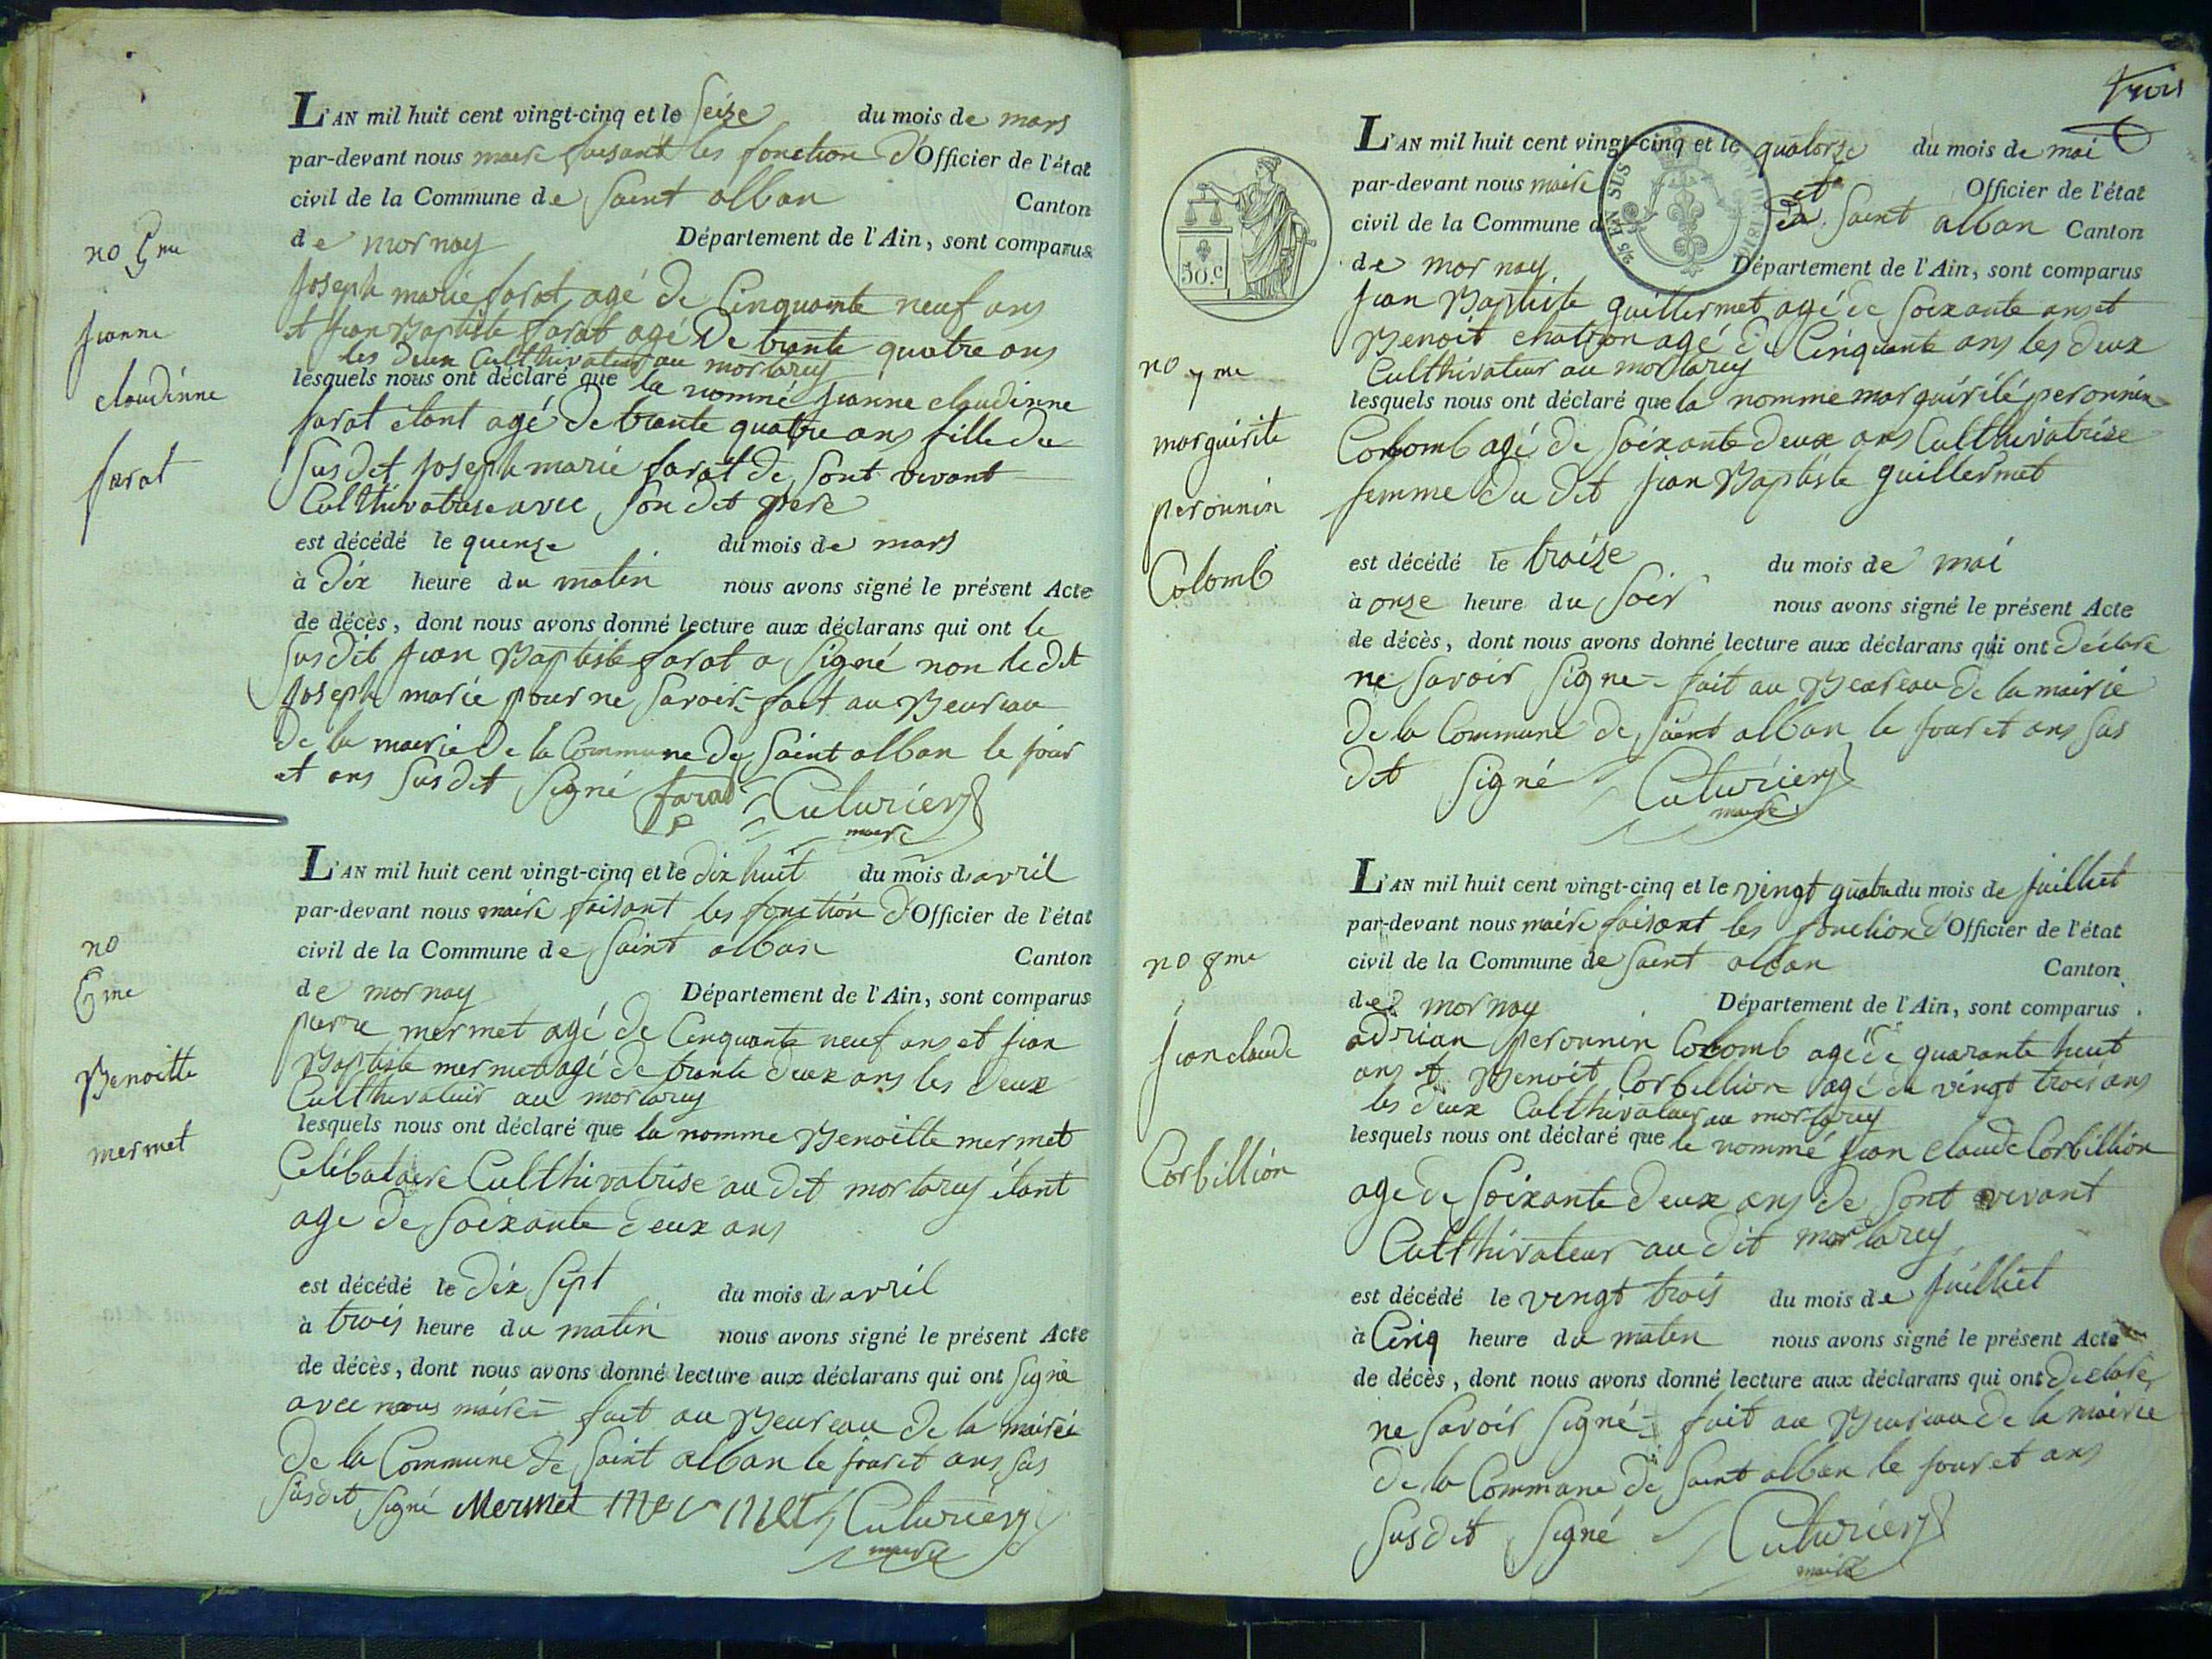 no 5me
jeanne
claudinne
farat
L'AN mil huit cent vingt-cinq et le seize du mois de mars
par-devant nous maire faisant les fonction d'Officier de l'état
civil de la Commune de Saint alban Canton
de mornay Département de l'Ain, sont comparus
joseph marie farat agé de Cinquante neuf ans
et jean Baptiste farat agé De trante quatre ans
les deux Culthivateur au mortarey
lesquels nous ont déclaré que la nommé jeanne claudinne
farat etant agé de trante quatre ans fille du
susdit joseph marie farat de sont vivant
Culthivatrise avec son dit pere
est décédé le quinze du mois de mars
à dix heure du matin nous avons signé le présent Acte
de décès, dont nous avons donné lecture aux déclarans qui ont le
susdit jean Baptiste farat a signé non le dit
joseph marie pour ne savoir - fait au Beureau
de la mairie de la Commune de Saint alban le jour
et ans susdit signé farat Cuturier
maire
no
6me
Benoitte
mermet
L'AN mil huit cent vingt-cinq et le dix huit du mois d'avril
par-devant nous maire faisant les fonction d'Officier de l'état
civil de la Commune de Saint alban Canton
de mornay Département de l'Ain, sont comparus
pierre mermet agé de Cinquante neuf ans et jean
Baptiste mermet agé de trante deux ans les deux
Culthivateur au mortarey
lesquels nous ont déclaré que la nomme Benoitte mermet
Célibataire Culthivatrise au dit mortarey étant
age de soixante deux ans
est décédé le dix sept du mois d'avril
à trois heure du matin nous avons signé le présent Acte
de décès, dont nous avons donné lecture aux déclarans qui ont signé
avec nous maire - fait au Beureau de la mairie
de la Commune de Saint alban le jour et ans sus
susdit signé Mermet mermet Cuturier
maire
trois
50.c
25 EN SUS
no 7me
marguirite
peronnin
Colomb
L'AN mil huit cent vingt-cinq et le quatorze du mois de mai
par-devant nous maire et Officier de l'état
civil de la Commune de Saint alban Canton
de mornay Département de l'Ain, sont comparus
jean Baptiste guillermet agé de soixante ans et
Benoit chatron agé de Cinquante ans les deux
Culthivateur au mortarey
lesquels nous ont déclaré que la nomme marguirité peronnin
Colomb agé de soixante deux ans Culthivatrise
femme du dit jean Baptiste guillermet
est décédé le traize du mois de mai
à onze heure du soir nous avons signé le présent Acte
de décès, dont nous avons donné lecture aux déclarans qui ont déclare
ne savoir signe - fait au Beureau de la mairie
de la Commune de Saint alban le jour et ans sus
dit signé Cuturier
maire
no 8me
jean claude
Corbillion
L'AN mil huit cent vingt-cinq et le vingt quatre du mois de juilliet
par-devant nous maire faisant les fonction d'Officier de l'état
civil de la Commune de Saint alban Canton
de mornay Département de l'Ain, sont comparus
adrian peronnin Colomb agé de quarante huit
ans et Benoit Corbillion agé de vingt trois ans
les deux Culthivateur au mortarey
lesquels nous ont déclaré que le nommé jean claude Corbillion
age de soixante deux ans de sont vivant
Culthivateur au dit mortarey
est décédé le vingt trois du mois de juilliet
à Cinq heure du matin nous avons signé le présent Acte
de décès, dont nous avons donné lecture aux déclarans qui ont declare
ne savoir signé - fait au Beureau de la mairie
de la Commune de Saint alban le jour et ans
susdit signé Cuturier
maire